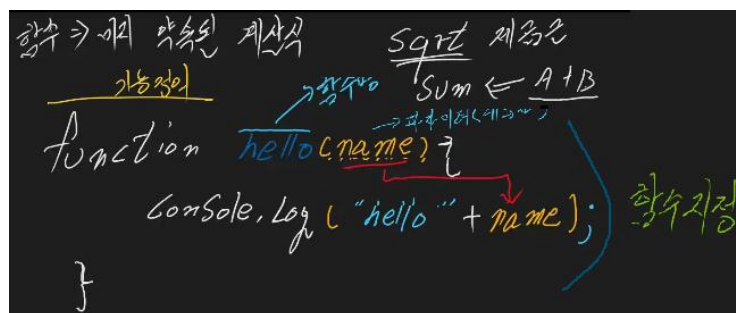 함수 ⇒ 미리 약속된 계산식 Sqrt 제곱근
Sum ← A+B
기능정의 → 함수명
→ 파라미터
function hello (name) {
console.log ("hello" + name);
함수지정
}